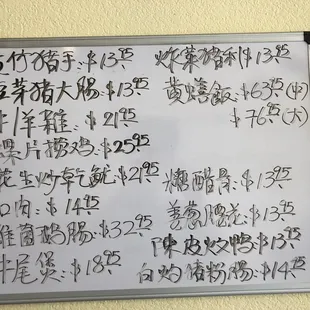 竹猪手:$13.95
豆芽猪大腸:$13.95
牛/羊雜:$21.95
片捞鸡:$25.95
花生炒乾魷:$21.95
扣肉:$14.95
雞菌鹅腸:$32.95
牛尾煲:$18.95
炸菜猪利$13.95
黄鳝飯:$63.95(中)
$76.95(大)
糖醋骨:$13.95
姜葱腰花:$13.95
陳皮炆鴨:$13.95
白灼猪粉腸:$14.95